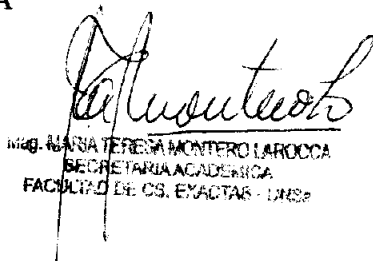 A
Mag. MARIA TERESA MONTERO LAROCCA
SECRETARIA ACADEMICA
FACULTAD DE CS. EXACTAS - UNSa